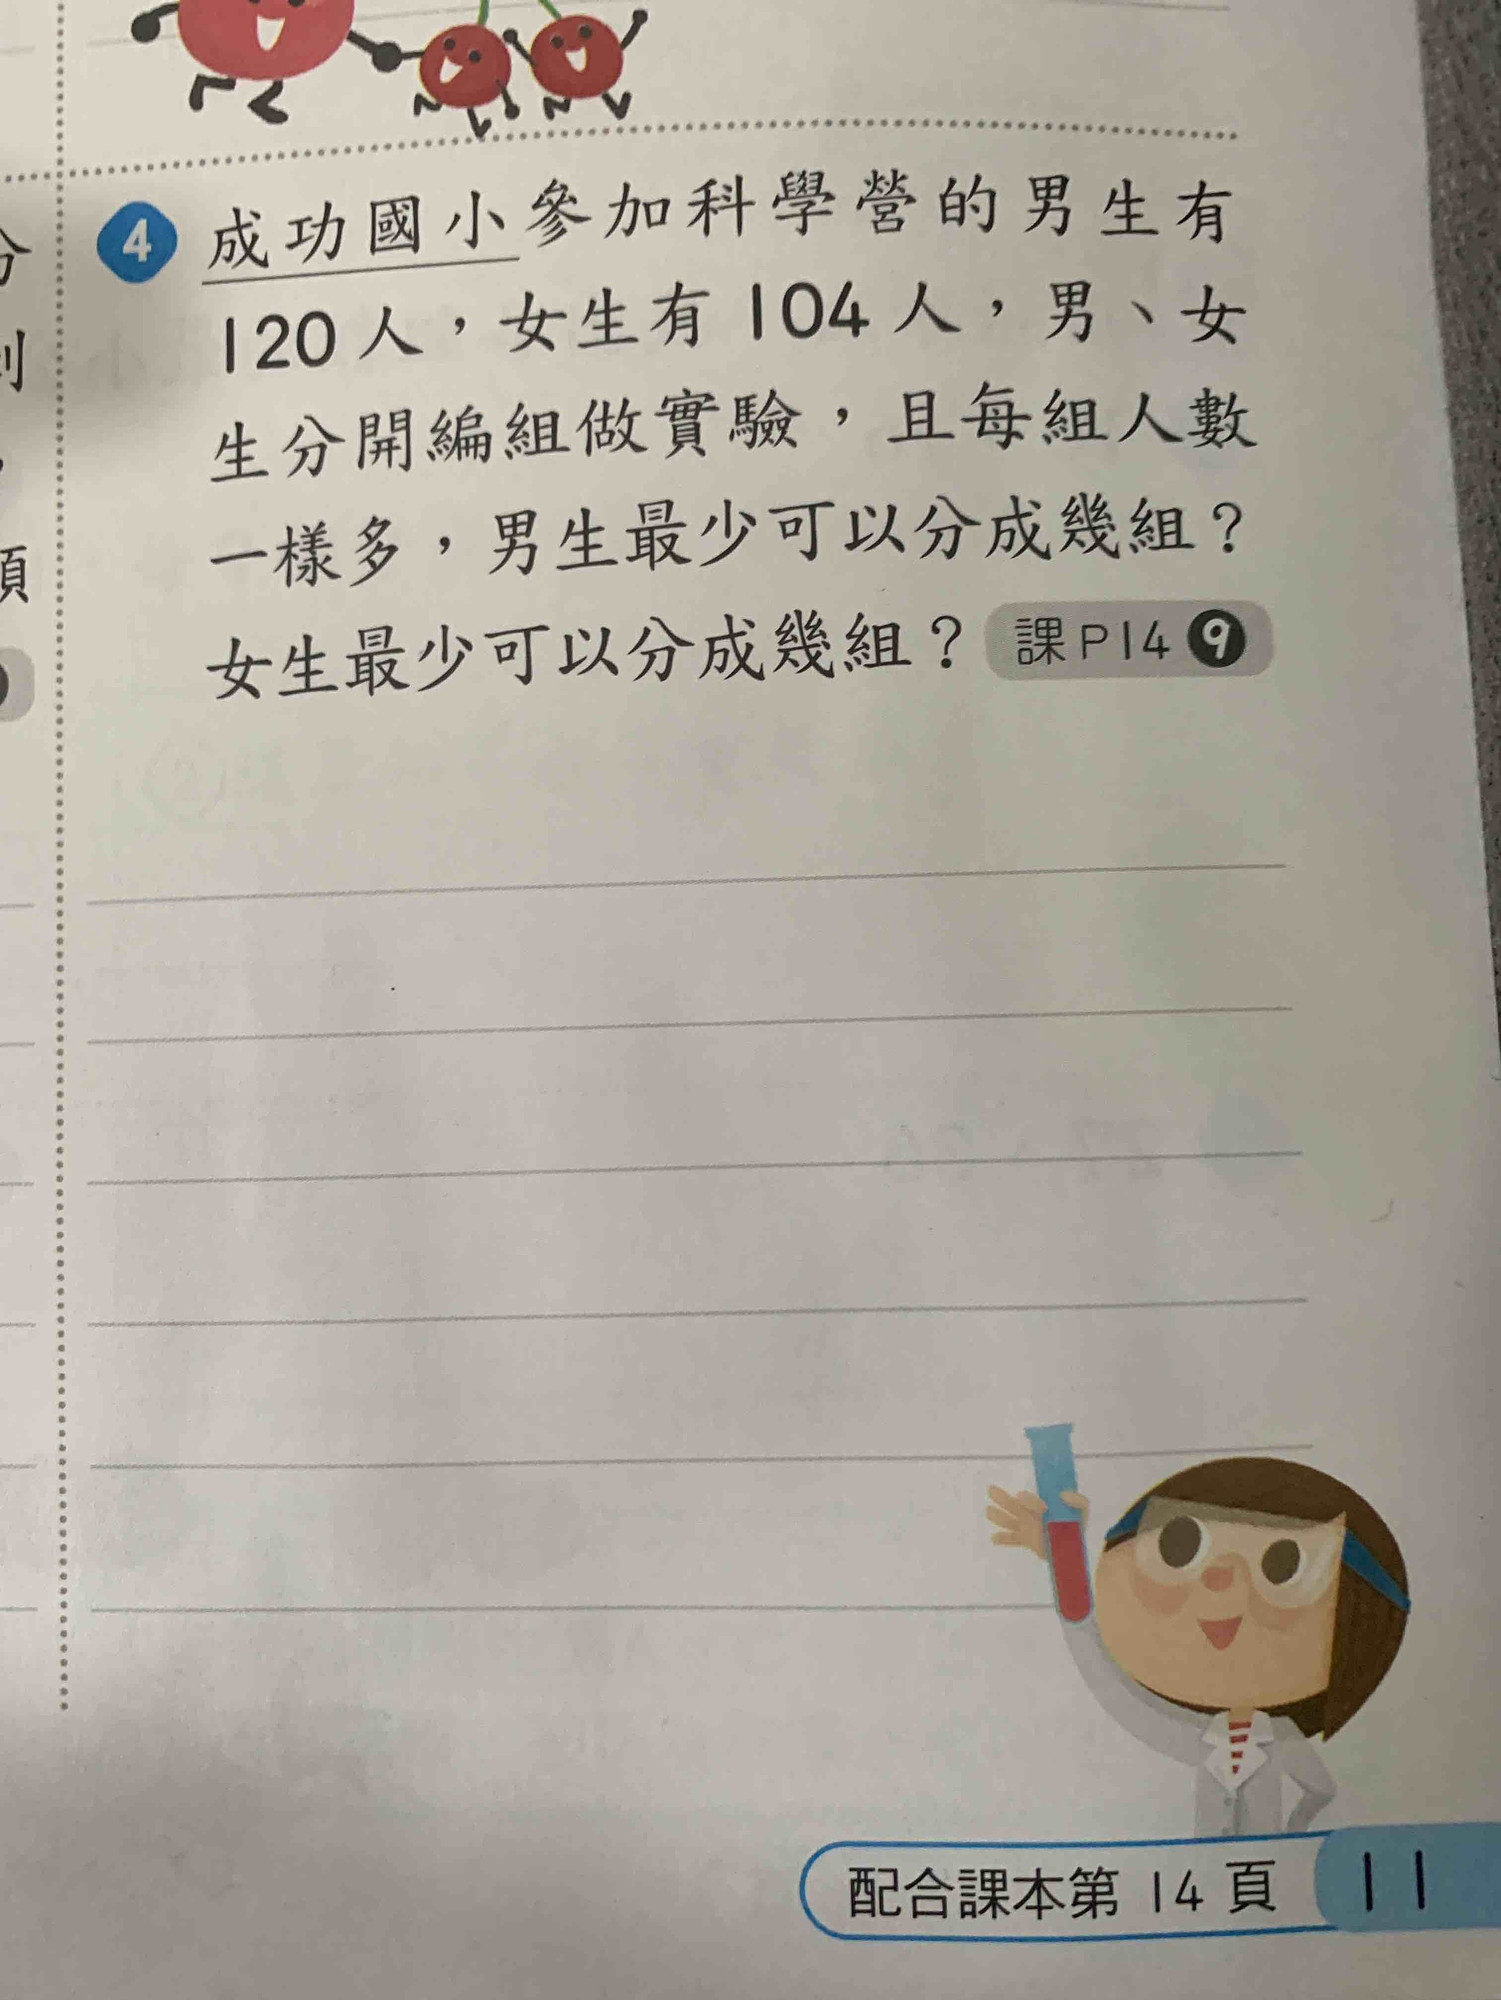 4 成功國小參加科學營的男生有
120人，女生有104人，男、女
生分開編組做實驗，且每組人數
一樣多，男生最少可以分成幾組？
女生最少可以分成幾組？ 課P14 9
配合課本第14頁 11